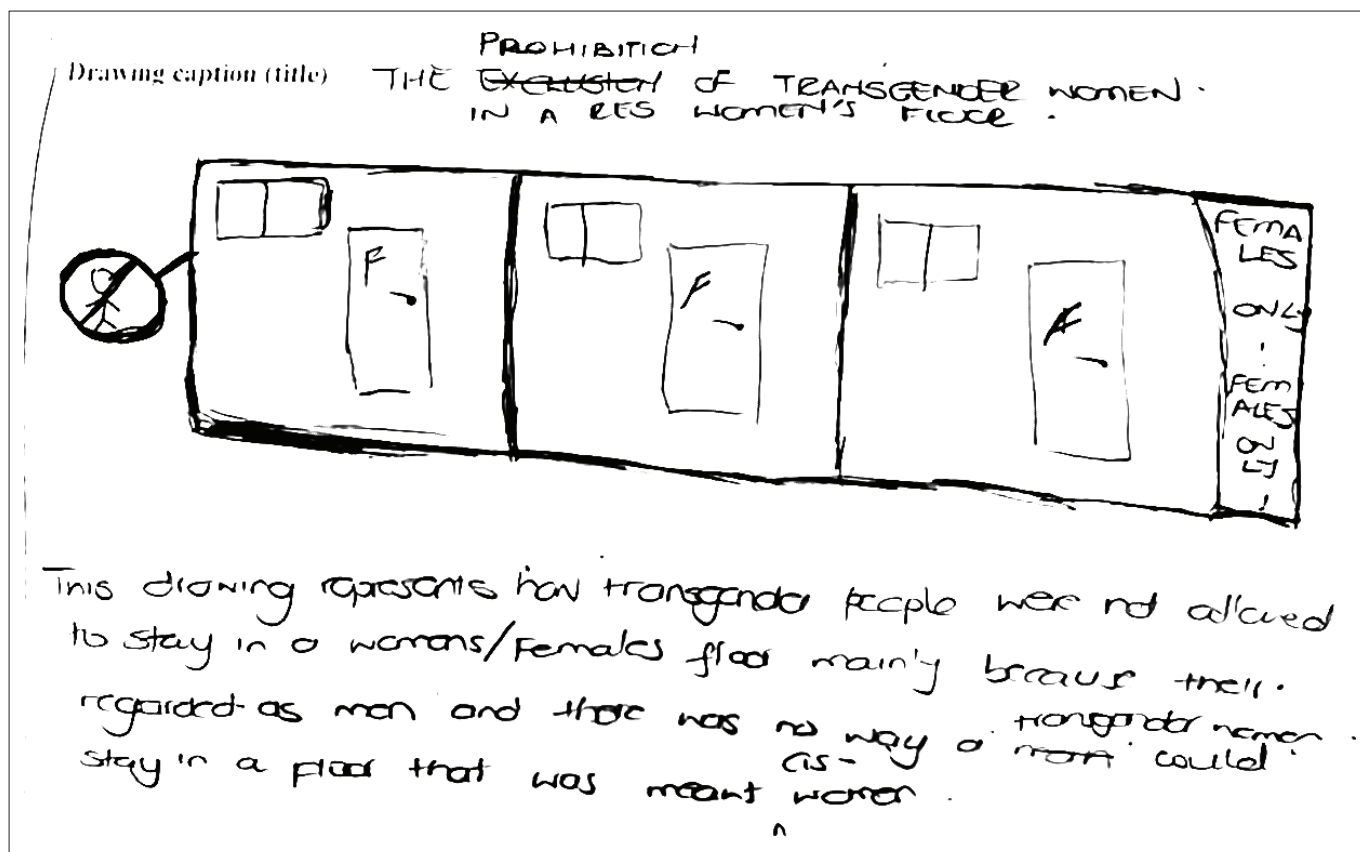 PROHIBITION
Drawing caption (title) THE EXCLUSION OF TRANSGENDER WOMEN.
IN A RES WOMEN'S FLOOR.
F
F
F
FEMA
LES
ONLY
!
FEM
ALES
ONLY
!
This drawing represents how transgender people were not allowed
to stay in a womans/Females floor mainly because their.
regarded as men and there was no way a transgender women.
man could
stay in a floor that was meant cis-women.
^